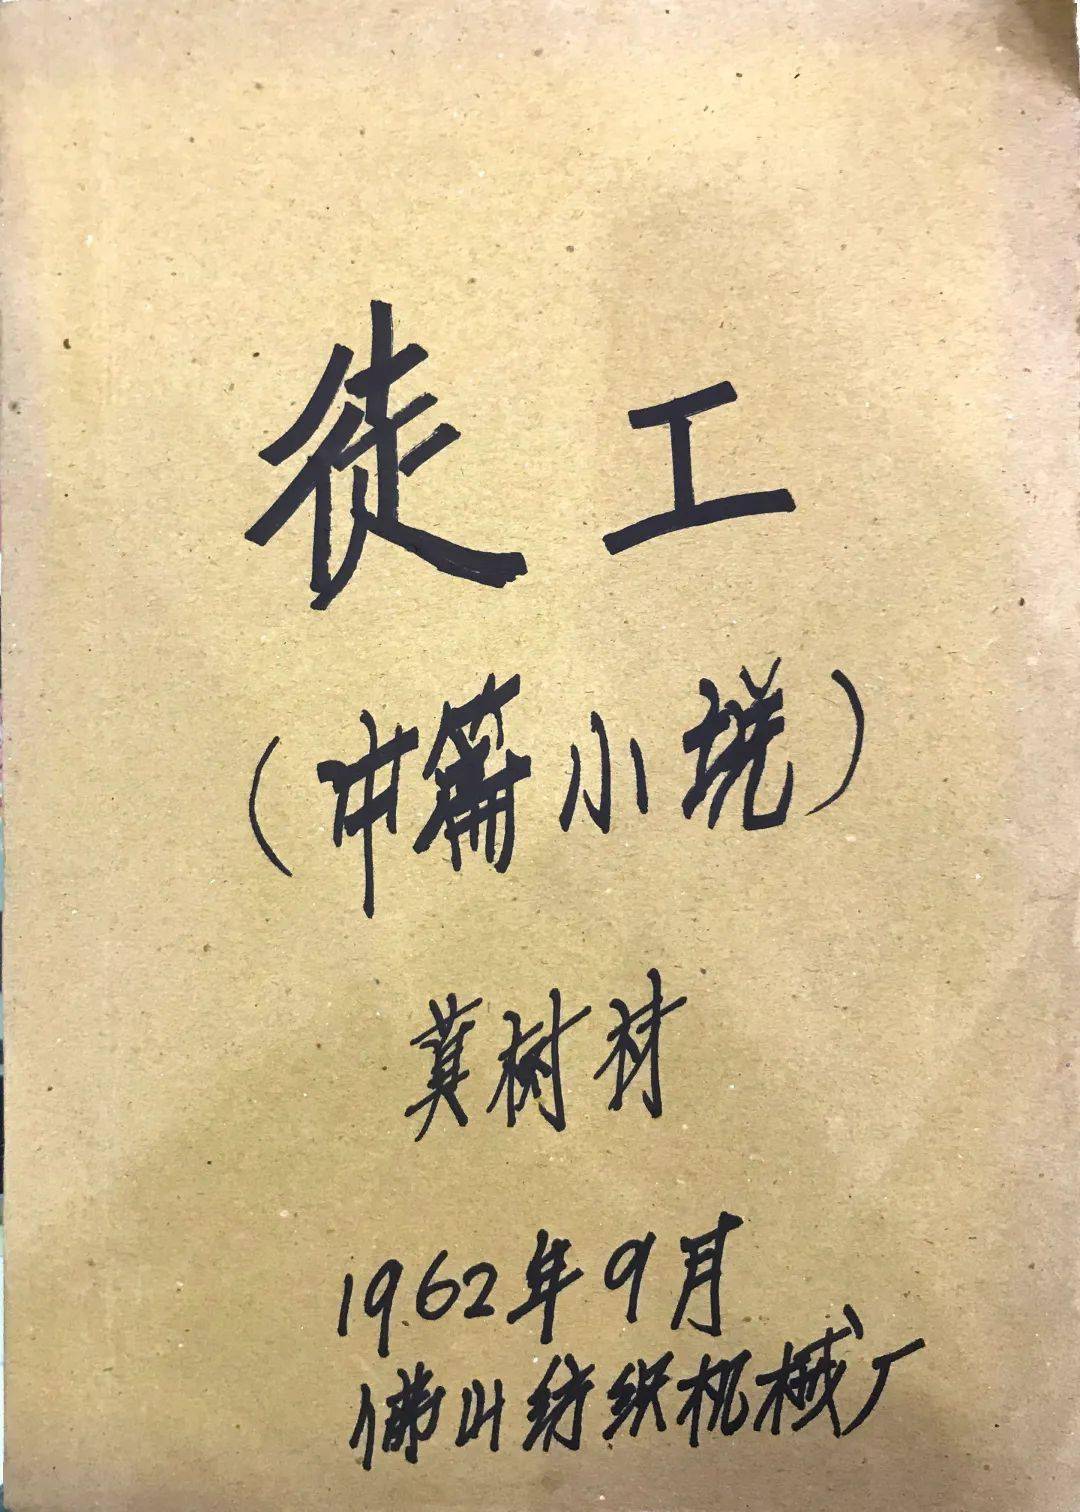 徒工
(中篇小说)
莫树材
1962年9月
佛山纺织机械厂